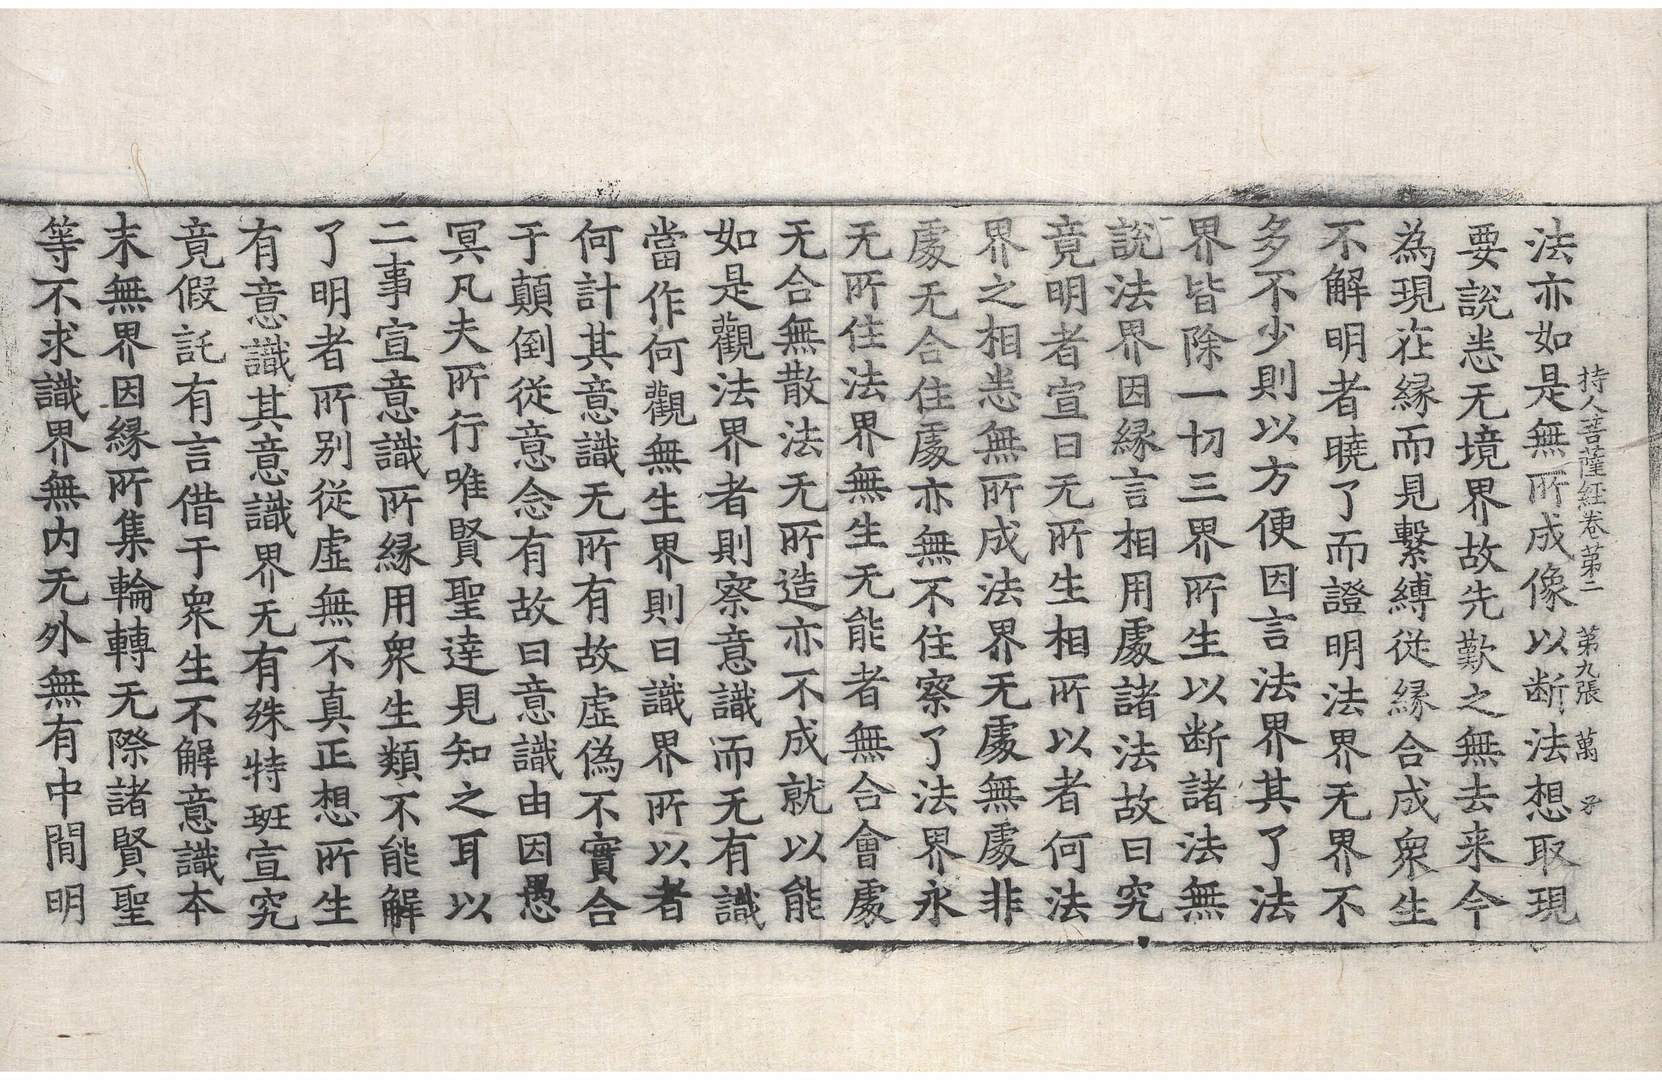 持人菩薩經卷第二 第九張 萬
法亦如是無所成像以断法想取現
要説恚无境界故先歎之無去来今
為現在縁而見繫縛從縁合成衆生
不解明者曉了而證明法界无界不
多不少則以方便因言法界其了法
界皆除一切三界所生以断諸法無
說法界因縁言相用處諸法故曰究
竟明者宣曰无所生相所以者何法
界之相恚無所成法界无處無處非
處无合住處亦無不住察了法界永
无所住法界無生无能者無合會處
无合無散法无所造亦不成就以能
如是觀法界者則察意識而无有識
當作何觀無生界則曰識界所以者
何計其意識无所有故虛偽不實合
于顛倒從意念有故曰意識由因愚
冥凡夫所行唯賢聖達見知之耳以
二事宣意識所縁用衆生類不能解
了明者所別從虛無不真正想所生
有意識其意識界无有殊特班宣究
竟假託有言借于衆生不解意識本
末無界因縁所集輪轉无際諸賢聖
等不求識界無内无外無有中間明